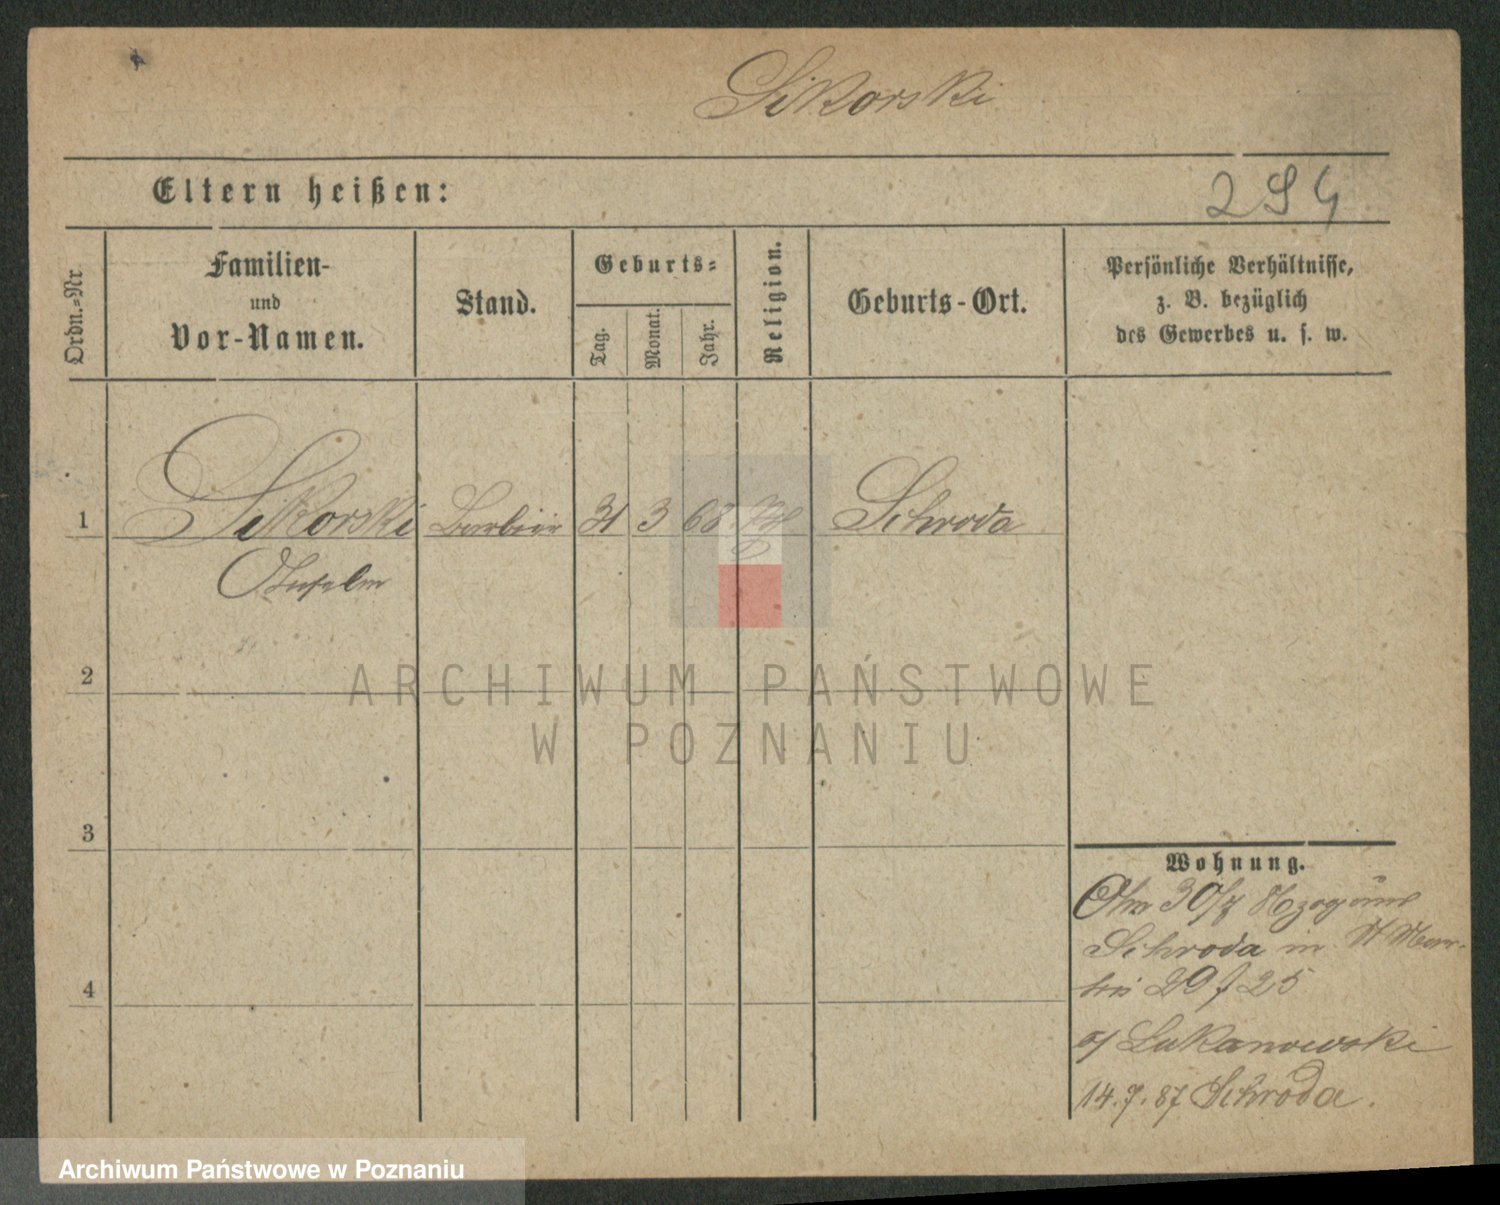 Sikorski
Eltern heißen:
294
Ordn.-Nr.
Familien-
und
Vor-Namen.
Stand.
Geburts-
Tag.
Monat.
Jahr.
Religion.
Geburts-Ort.
Persönliche Verhältnisse,
z. B. bezüglich
des Gewerbes u. s. w.
1
Sikorski Barbier 31 3 68 Schroda
2
3
4
Wohnung.
30/7
Schroda in
bei 29 f 25
o/ Lukanowski
14.7.87 Schroda.
ARCHIWUM PAŃSTWOWE
W POZNANIU
Archiwum Państwowe w Poznaniu